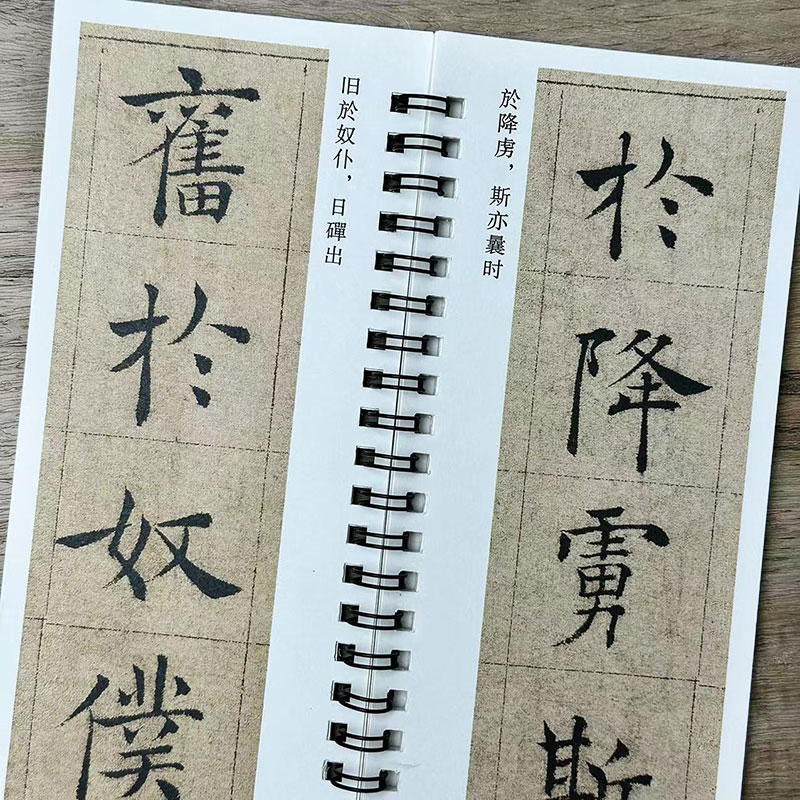 於降虜斯
於降虏，斯亦曩时
旧於奴仆，日磾出
舊於奴僕